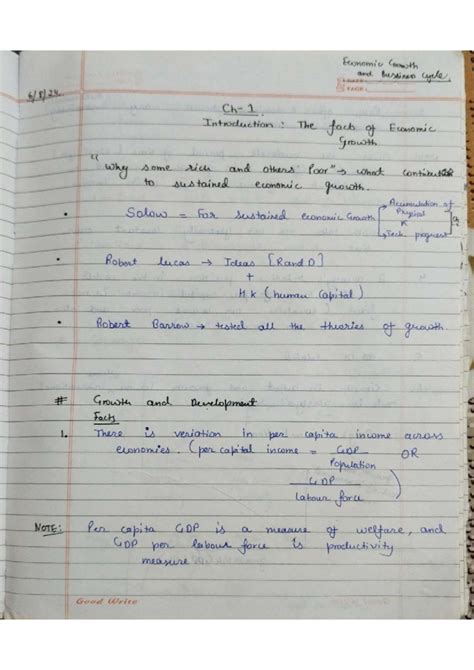 Economic Growth
and Bussiness Cycle.
6/8/24.
Ch-1.
Introduction : The facts of Economic
Growth
"Why some rich and others Poor" → what contribute
to sustained economic growth.
• Solow = For sustained economic Growth
Accumulation of
Physical
K
Tech. progress
• Robert Lucas → Ideas [R and D]
+
HK (human Capital)
• Robert Barrow → tested all the theories of growth.
# Growth and Development
Facts
1. There is veriation In per capita income across
economies. (per capital income = GDP OR
Population
GDP )
Labour force
NOTE: Per capita GDP is a measure of welfare, and
GDP per labour force is productivity
measure
Good Write